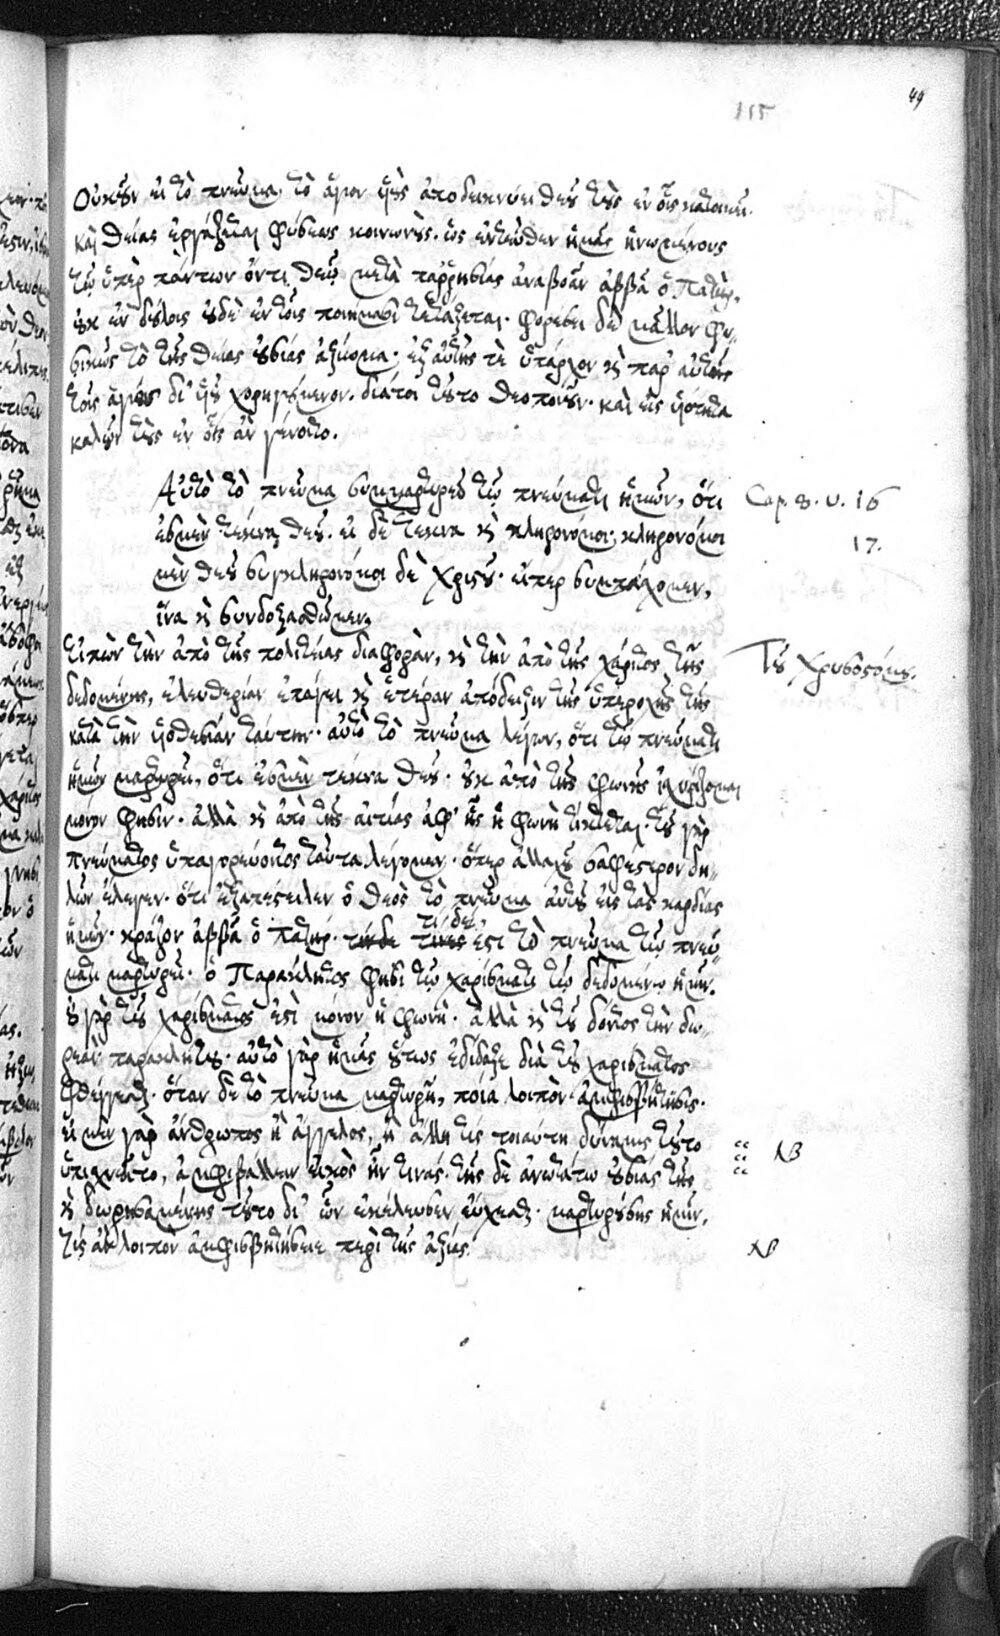 49
115
Οὐκοῦν εἰ τὸ πνεῦμα τὸ ἅγιον υἱοὺς ἀποδεικνύει θεοῦ τοὺς ἐν οἷς κατοικεῖ.
καὶ θείας ἐργάζεται φύσεως κοινωνούς. ὡς ἐντεῦθεν ἡμᾶς ἡνωμένους
τῷ ὑπὲρ πάντων ὄντι θεῷ μετὰ παρρησίας ἀναβοᾶν ἀββᾶ ὁ πατήρ,
οὐκ ἐν δούλοις οὐδὲ ἐν τοῖς ποιήμασι τετάξεται. φορέσει δὲ μᾶλλον φυ-
σικῶς τὸ τῆς θείας οὐσίας ἀξίωμα. ἐξ αὐτῆς τὲ ὑπάρχον καὶ παρ' αὐτῆς
τοῖς ἁγίοις δι' υἱοῦ χορηγούμενον. διάτοι τοῦτο θεοποιοῦν. καὶ εἰς υἱότητα
καλοῦν τοὺς ἐν οἷς ἂν γένοιτο.
Αὐτὸ τὸ πνεῦμα συμμαρτυρεῖ τῷ πνεύματι ἡμῶν, ὅτι
Cap. 8. v. 16
ἐσμὲν τέκνα θεοῦ. εἰ δὲ τέκνα καὶ κληρονόμοι, κληρονόμοι
17.
μὲν θεοῦ συγκληρονόμοι δὲ Χριστοῦ. εἴπερ συμπάσχομεν,
ἵνα καὶ συνδοξασθῶμεν.
Εἰπὼν τὴν ἀπὸ τῆς πολιτείας διαφορὰν, καὶ τὴν ἀπὸ τῆς χάριτος τῆς
Τοῦ Χρυσοστόμου.
δεδομένης, ἐλευθερίαν ἐπάγει καὶ ἑτέραν ἀπόδειξιν τῆς ὑπεροχῆς τῆς
κατὰ τὴν υἱοθεσίαν ταύτην. αὐτὸ τὸ πνεῦμα λέγων, ὅτι τῷ πνεύματι
ἡμῶν μαρτυρεῖ, ὅτι ἐσμὲν τέκνα θεοῦ. οὐκ ἀπὸ τῆς φωνῆς ἰσχυρίζομαι
μόνον φησίν. ἀλλὰ καὶ ἀπὸ τῆς αἰτίας ἀφ' ἧς ἡ φωνὴ τίκτεται. τοῦ γὰρ
πνεύματος ὑπαγορεύοντος ταῦτα λέγομεν. ὅπερ ἀλλαχοῦ σαφέστερον δη-
λῶν ἔλεγεν. ὅτι ἐξαπέστειλεν ὁ θεὸς τὸ πνεῦμα αὐτοῦ εἰς τὰς καρδίας
ἡμῶν. κράζον ἀββᾶ ὁ πατήρ. τί δέ, ἐστι τὸ πνεῦμα τῷ πνεύ-
ματι μαρτυρεῖ. ὁ Παράκλητος φησὶ τῷ χαρίσματι τῷ δεδομένῳ ἡμῖν.
οὐ γὰρ τοῦ χαρίσματός ἐστι μόνον ἡ φωνή. ἀλλὰ καὶ τοῦ δόντος τὴν δω-
ρεὰν παρακλήτου. αὐτὸ γὰρ ἡμᾶς οὕτως ἐδίδαξε διὰ τοῦ χαρίσματος
φθέγγεσθαι. ὅταν δὲ τὸ πνεῦμα μαρτυρῇ, ποία λοιπὸν ἀμφισβήτησις.
εἰ μὲν γὰρ ἄνθρωπος ἢ ἄγγελος, ἢ ἄλλη τις τοιαύτη δύναμις τοῦτο
NB
ὑπισχνεῖτο, ἀμφιβάλλειν εἰκὸς ἦν τινάς. τῆς δὲ ἀνωτάτω οὐσίας τῆς
καὶ δωρησαμένης τοῦτο δι' ὧν ἐκέλευσεν εὔχεσθαι. μαρτυρούσης ἡμῖν,
τίς ἂν λοιπὸν ἀμφισβητήσειε περὶ τῆς ἀξίας.
NB